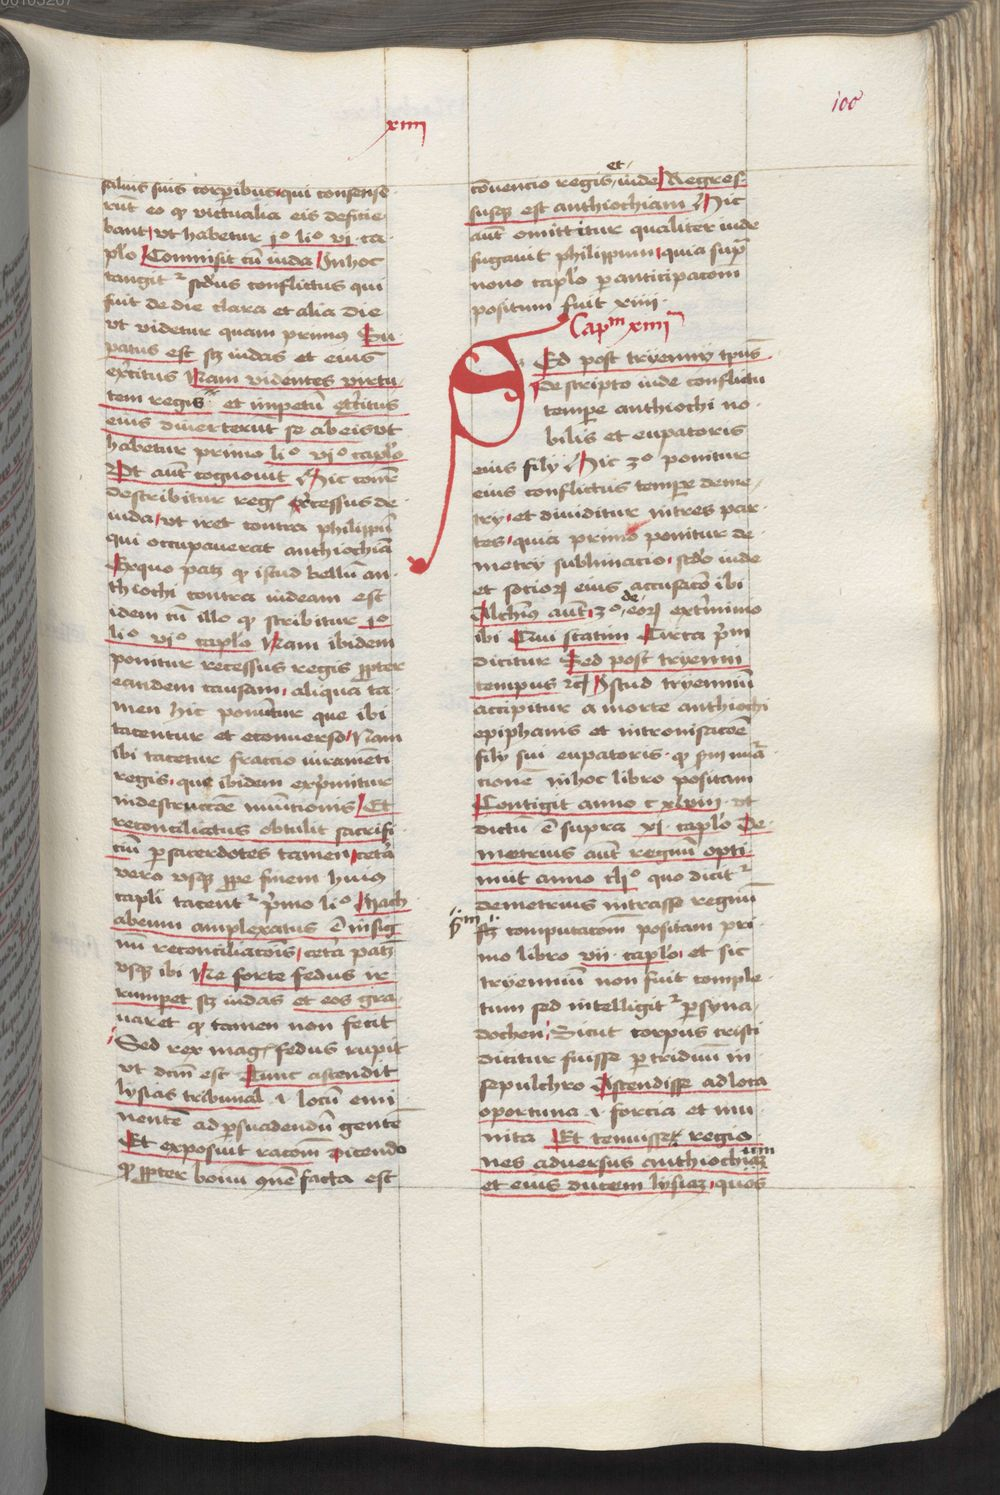 00103207
100
xiiii
saluis suis corꝑibus qui consense
rūt eo qꝫ victualia eis deficie
bant vt habetur jº liº vj ca
plo Commisit cū iuda Jn hoc
tangit̄ scd̄us conflictus qui
fuit de die clara et alia die
vt videtur quam primus Eu
patus est scꝫ iudas et eius
exc̄itus Nam videntes virtu
tem regis et impetū exc̄itus
eius diuerterūt se ab eis vt
habetur primo liº vjº caplo
Vt aūt cognouit Hic com̄
describitur reg recessus de
iuda vt iret contra philippū
qui occupauerat anthiochiā
Ex quo patꝫ qꝫ istud bellū an
thiochi contra iudeam est
idem cū illo qꝫ scribitur jº
liº vjº caplo Nam ibidem
ponitur recessus regis ꝓpter
eandem causam aliqua ta
men hic ponūtur que ibi
tacentur et econuerso Nam
ibi tacetur fractio iuramēti
regis que ibidem exp̄mitur
in destructōe munitionis Et
reconciliatus obtulit sacrifi
ciū ꝑ sacerdotes tamen cetā
vero vsqꝫ ꝓpe finem huius
capli tacent̄ p̄mo liº Mach
abeum amplexatus ē in sig
nū reconciliatōis cetā patꝫ
vsqꝫ ibi Ne forte fedus ir
rumpet scꝫ iudas et eos gra
uaret qꝫ tamen non fecit
Sed rex mag fedus rupit
vt dcm̄ est Tunc ascendit
lysias tribunal .i. locū emi
nentē ad ꝑsuadendū gentē
Et exposuit racom̄ dicendo
qꝫ ꝓpter bonū cōe facta est
et
cōuencio regis iude Regres
susqꝫ est anthiochiam Hic
aūt omittitur qualiter inde
fugauit philippum quia sup̄
nono caplo ꝑ anticipacom̄
positum fuit xiiii
Capm xiiiim
Sed post trÿennÿ tp̄us
descripto iude conflictu
tempore anthiochi no
bilis et eupatoris
eius filÿ Hic 3º ponitur
eius conflictus tempore deme
trÿ et diuiditur in tres par
tes quia primo ponitur de
metrÿ sublimacio scdo iude
et socioꝝ eius accusacō ibi
Alchim̄s aūt 3º de eoꝝ exterminio
ibi Cui statim Circa p̄m
dicitur Sed post trÿenni
tempus ⁊c̄ Jstud trÿenniū
accipitur a morte anthiochi
epiphanis et intronisacōe
filÿ sui eupatoris qꝫ s̄m nūā
cionē in hoc libro positam
Contigit anno c xlviiiº vt
dictū ē supra xj caplo De
metrius aūt regnū opti
nuit anno cliº quo dicit̄
demetrius intrasse regnū
p̄m
scꝫ computacom̄ positam pri
mo libro vij caplo et sic
trÿenniū non fuit comple
tum sed intelligit̄ ꝑ syna
dochen Sicut corpus cristi
dicitur fuisse ꝑ triduū in
sepulchro Ascendisse ad loca
oportuna .i. forcia et mu
nita Et tenuisse regio
nes aduersus anthiochum
et eius ducem lysiaꝫ quos